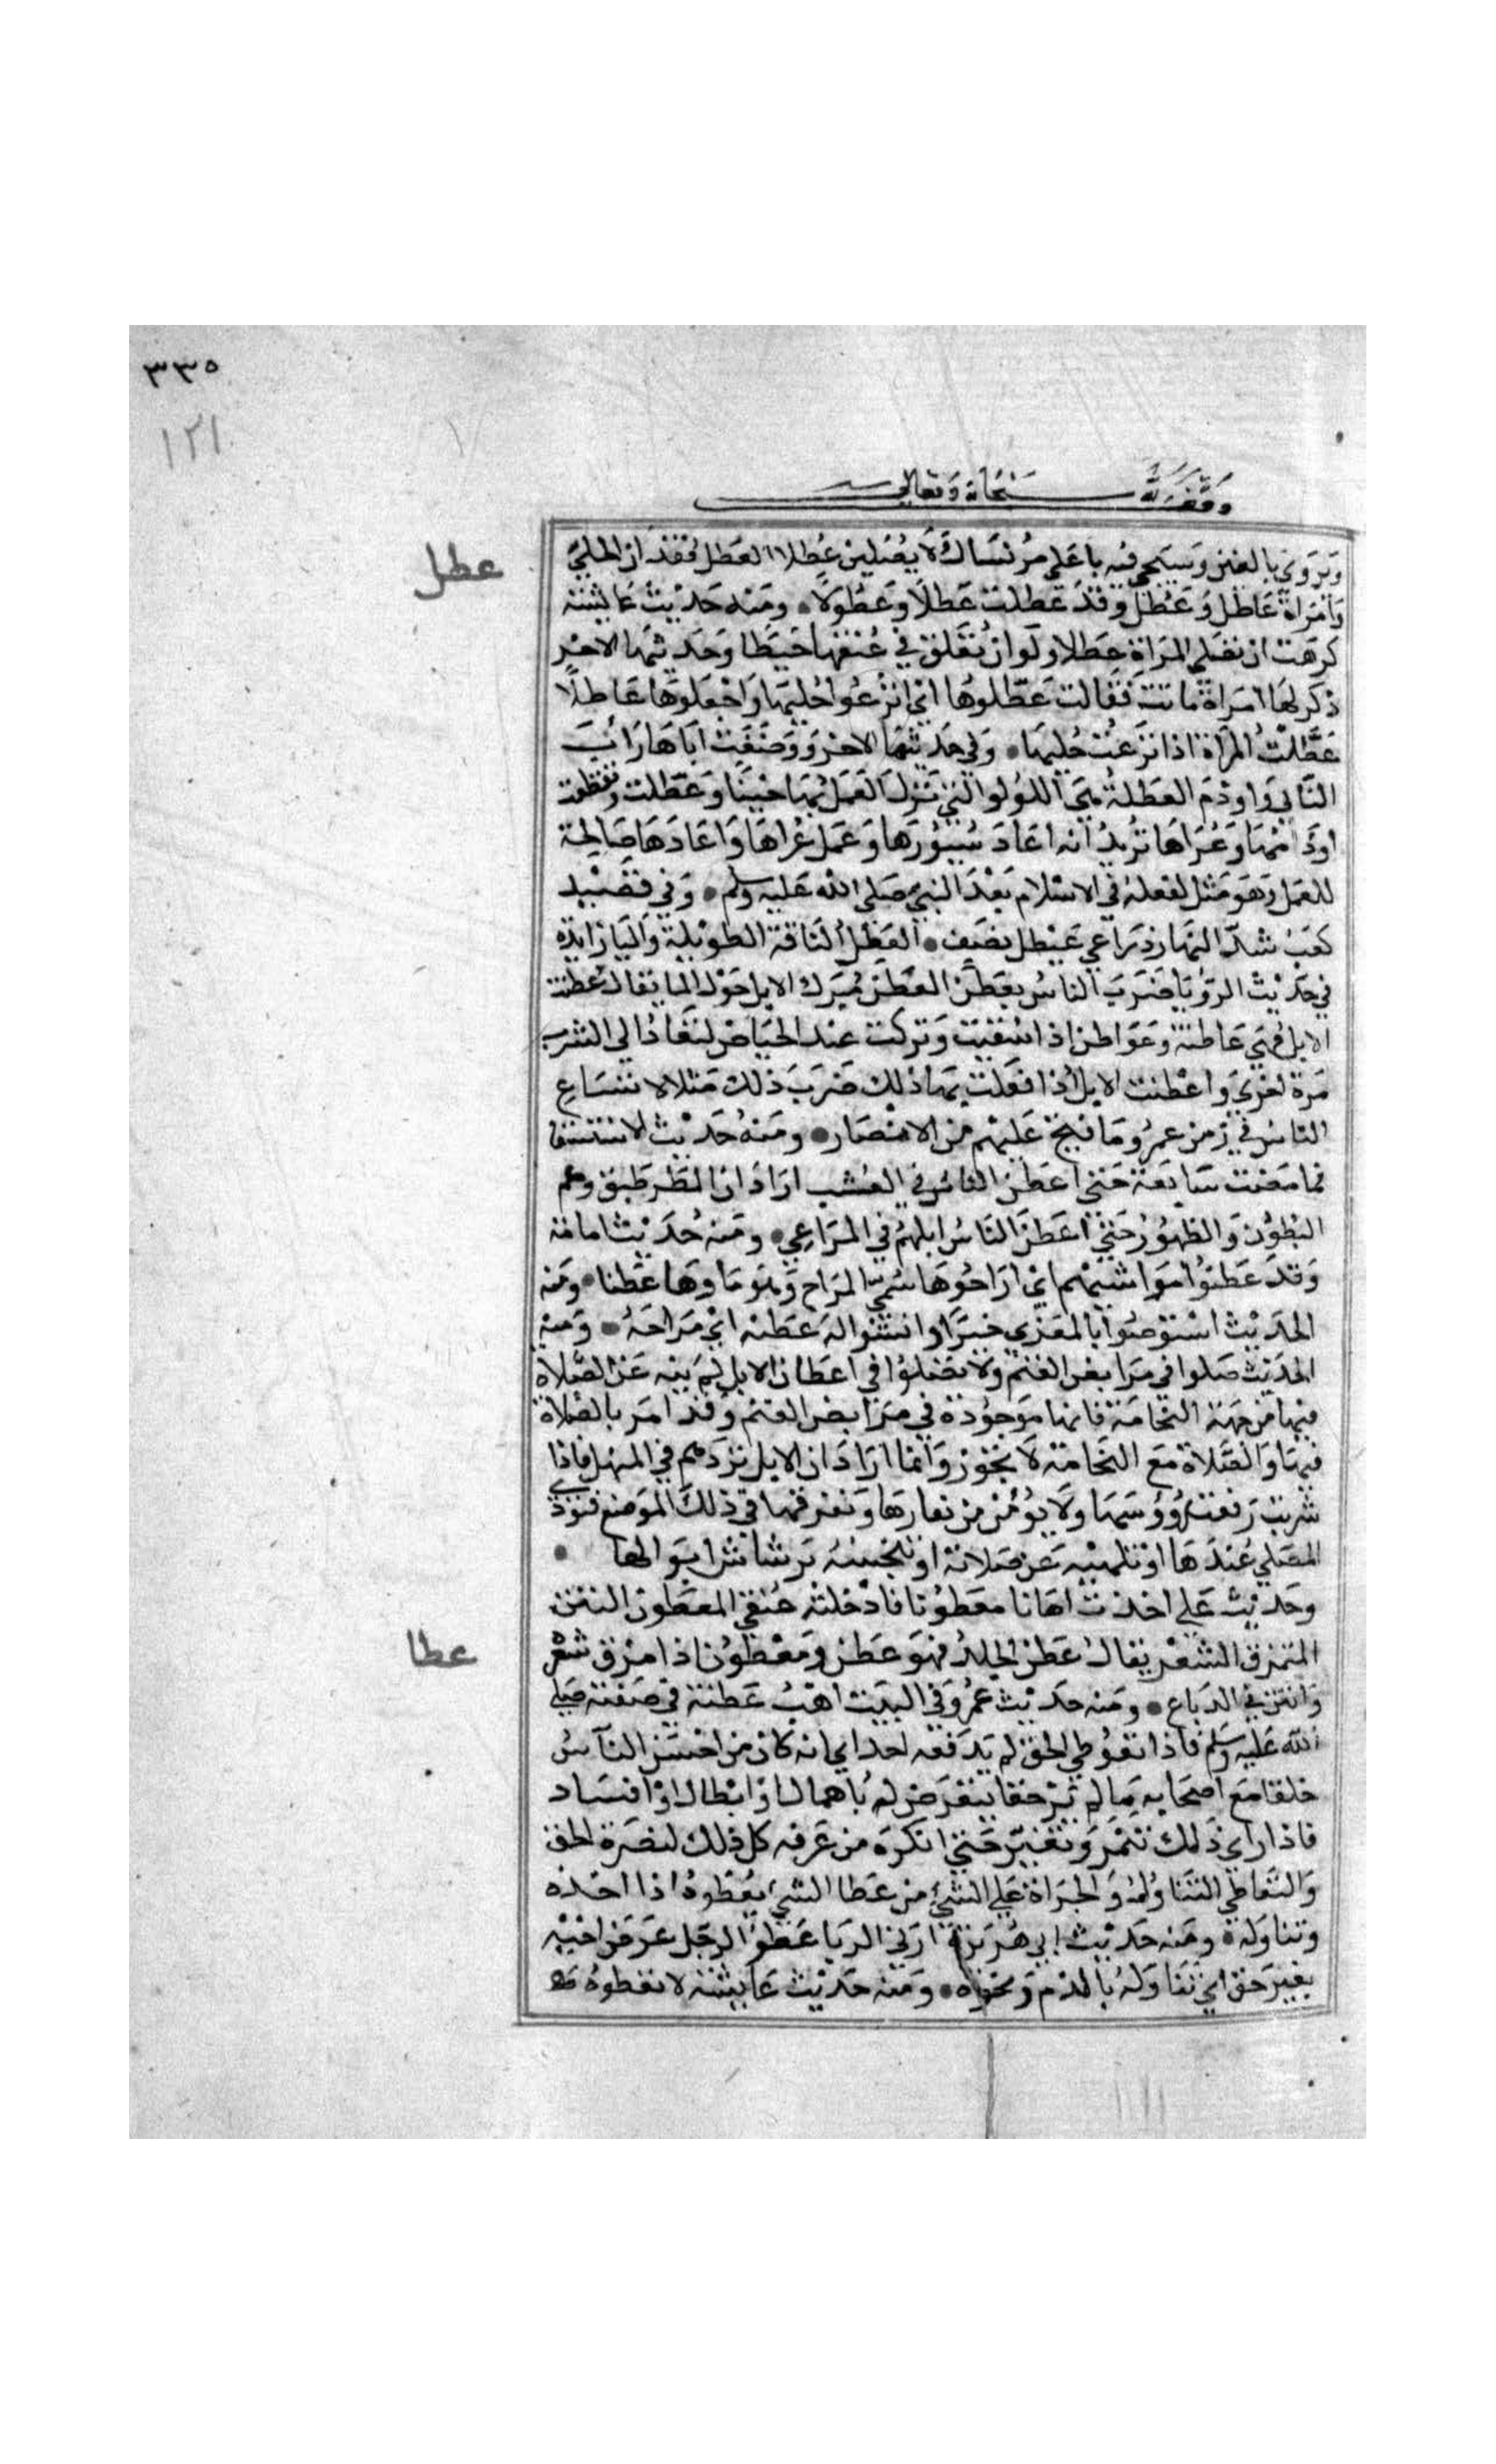 ٣٣٥
١٢١
وقف لله سبحانه وتعالى
عطل
ويروي بالغين وسيجي فيه يا علي مر نساك لا يصلين عطلا العطل فقدان الحلي
وامراة عاطل وعطل وقد عطلت عطلا وعطولا ومنه حديث عايشة
كرهت ان تصلي المراة عطلا ولو ان تعلق في عنقها خيطا وحديثها الاخر
ذكر لها امراة ماتت فقالت عطلوها اي انزعوا حليها واجعلوها عاطلا
عطلت المراة اذا نزعت حليها وفي حديثها الاخر ووصفت اباها راب
الثاي واوذم العطلة هي الدلو التي ترك العمل بها حينا وعطلت وتقطعت
اوذامها وعراها تريد انه اعاد سيورها وعمل عراها واعادها صالحة
للعمل وهو مثل لفعله في الاسلام بعد النبي صلى الله عليه وسلم وفي قصيد
كعب شد النهار ذراعي عيطل نصف العطل الناقة الطويلة واليا زايدة
في حديث الرويا فضرب الناس بعطن العطن مبرك الابل حول الما يقال عطنت
الابل فهي عاطنة وعواطن اذا سقيت وتركت عند الحياض لتعاد الى الشرب
مرة اخرى واعطنت الابل اذا فعلت بها ذلك ضرب ذلك مثلا لاتساع
الناس في زمن عمر وما فتح عليهم من الامصار ومنه حديث الاستسقا
فما مضت سابعة حتى اعطن الناس في العشب اراد ان المطر طبق وعم
البطون والظهور حتى اعطن الناس ابلهم في المراعي ومنه حديث اسامة
وقد عطنوا مواشيهم اي اراحوها سمي المراح وهو ماواها عطنا ومنه
الحديث استوصوا بالمعزي خيرا وانقشوا له عطنه اي مراحه ومنه
الحديث صلوا في مرابض الغنم ولا تصلوا في اعطان الابل لم ينه عن الصلاة
فيها من جهة النجاسة فانها موجودة في مرابض الغنم وقد امر بالصلاة
فيها والصلاة مع النجاسة لا تجوز وانما اراد ان الابل تزدحم في المنهل فاذا
شربت رفعت رووسها ولا يومن من نفارها وتفرقها في ذلك الموضع فتوذي
المصلي عندها او تلهيه عن صلاته او تنجسه برشاش ابوالها
وحديث علي اخذت اهابا معطونا فادخلته عنقي المعطون المنتن
عطا
المتمزق الشعر يقال عطن الجلد فهو عطن ومعطون اذا مزق شعر
وانتن في الدباغ ومنه حديث عمر وفي البيت اهب عطنة في صفته صلى
الله عليه وسلم فاذا تعوطي الحق لم يعرفه احد اي انه كان من احسن الناس
خلقا مع اصحابه ما لم ير حقا يتعرض له باهمال او ابطال او افساد
فاذا راي ذلك تنمر وتغير حتى انكره من عرفه كل ذلك لنصرة الحق
والتعاطي التناول والجراة علي الشي من عطا الشي يعطوه اذا اخذه
وتناوله ومنه حديث ابي هريرة اربى الربا عطو الرجل عرض اخيه
بغير حق اي تناوله بالذم ونحوه ومنه حديث عايشة لا تعطوه